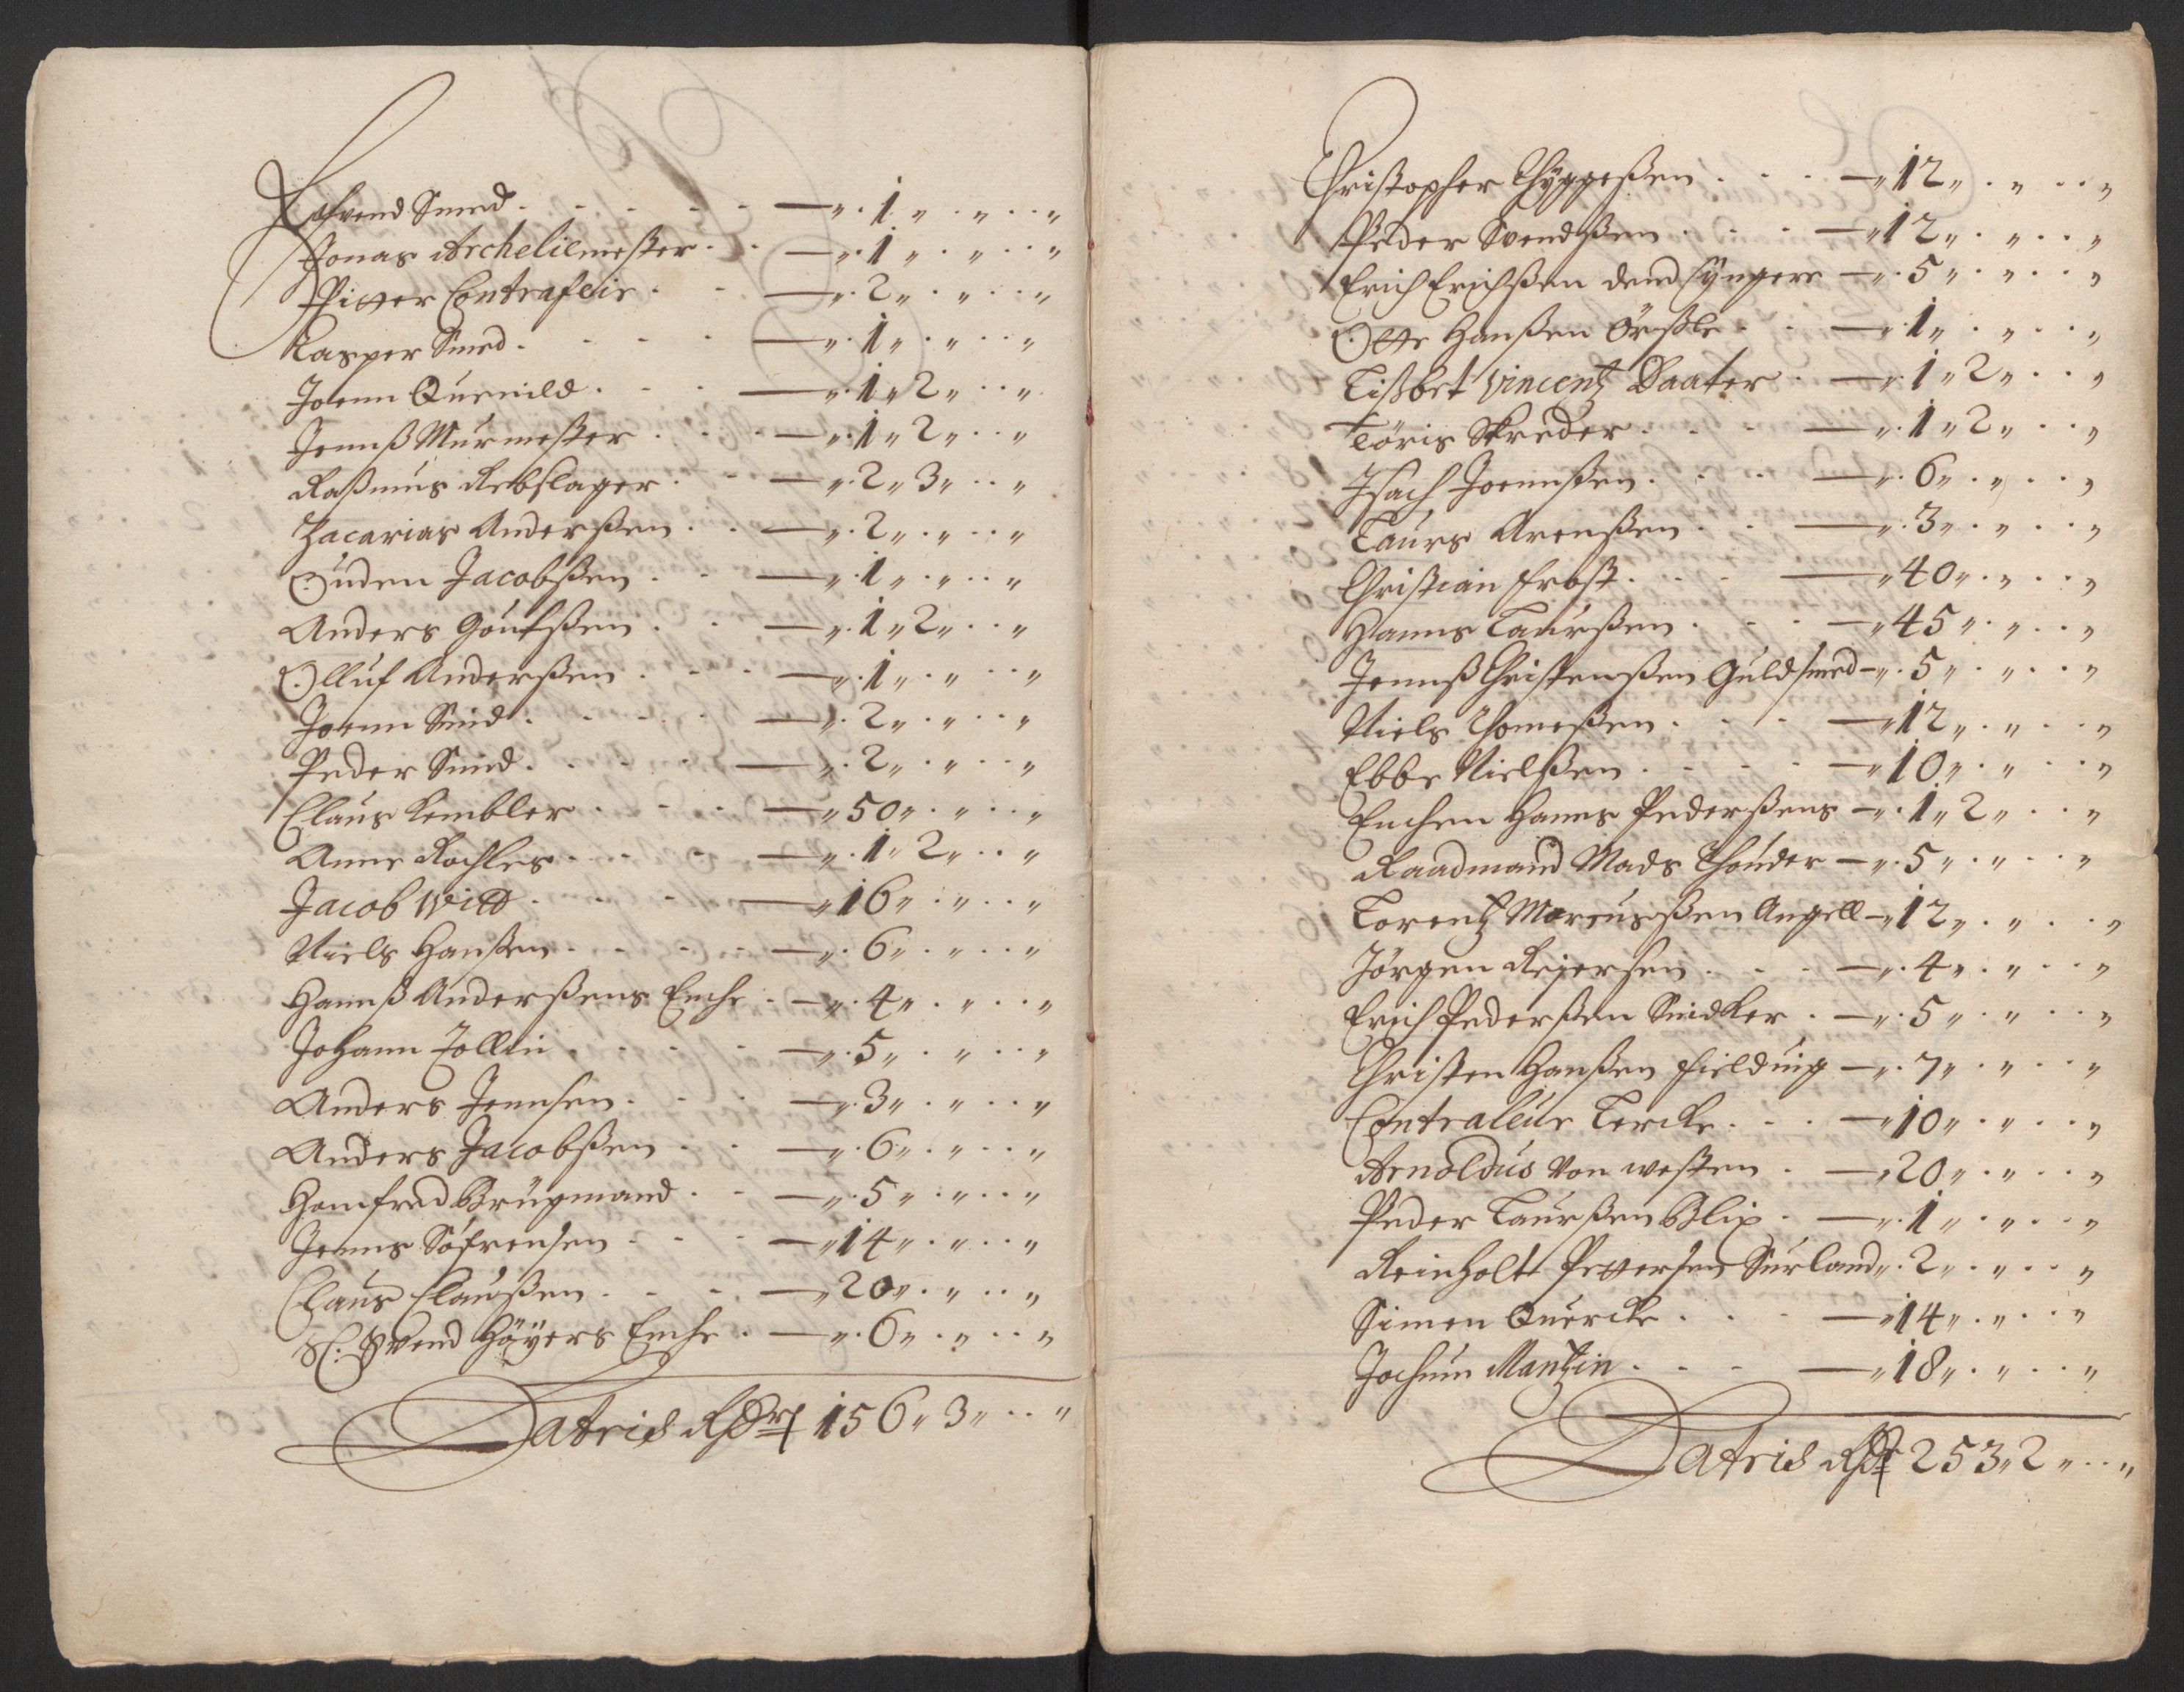 Svend Smed - - - - - —„ 1 „ „ „
Jonas Archeliemester - - —„ 1 „ „ „
Pitter Contrafeir - - —„ 2 „ „ „
Kasper Smed - - - —„ 1 „ „ „
Joenn Quenild - - - —„ 1 „ 2 „ „
Jennß Murmester - - - —„ 1 „ 2 „ „
Raßmus Rebslager - - —„ 2 „ 3 „ „
Zacarias Anderßen - - —„ 2 „ „ „
Ouden Jacobßen - - —„ 1 „ „ „
Anders Goutßen - - —„ 1 „ 2 „ „
Olluf Anderßen - - - —„ 1 „ „ „
Joenn Smid - - - - —„ 2 „ „ „
Peder Smid - - - - —„ 2 „ „ „
Claus Kembler - - - —„ 50 „ „ „
Anne Rochles - - - —„ 1 „ 2 „ „
Jacob Witt - - - —„ 16 „ „ „
Niels Hanßen - - - - —„ 6 „ „ „
Hannß Anderßens Enche - —„ 4 „ „ „
Johann Tollin - - - - —„ 5 „ „ „
Anders Jennsen - - - —„ 3 „ „ „
Anders Jacobßen - - —„ 6 „ „ „
Homfred Brugmand - - —„ 5 „ „ „
Jenns Söfrensen - - - —„ 14 „ „ „
Claus Claußen - - - - —„ 20 „ „ „
Sl: Svend Höyers Enche - —„ 6 „ „ „
Lateris Rdr 156 „ 3 „ „
Christopher Thyggeßen - - —„ 12 „ „ „
Peder Svendßen - - - —„ 12 „ „ „
Erich Erichßen dend Yngere —„ 5 „ „ „
Otte Hanßen Örßle - - —„ 1 „ „ „
Lißbet Vincentz Daater - —„ 1 „ 2 „ „
Töris Skreder - - - —„ 1 „ 2 „ „
Isach Joennßen - - - —„ 6 „ „ „
Laurs Arenßen - - —„ 3 „ „ „
Christian Frost - - - —„ 40 „ „ „
Hanns Laurßen - - - —„ 45 „ „ „
Jennß Christenßen Guldsmed —„ 5 „ „ „
Niels Thomeßen - - - —„ 12 „ „ „
Ebbe Nielßen - - - - —„ 10 „ „ „
Enchen Hanns Pederßens —„ 1 „ 2 „ „
Raadmand Mads Thonder —„ 5 „ „ „
Lorentz Morcusßen Angell —„ 12 „ „ „
Jörgen Rejersen - - - —„ 4 „ „ „
Erich Pederßen Snidker - —„ 5 „ „ „
Christen Hanßen Fielduig —„ 7 „ „ „
Contraleur Lercke - - - —„ 10 „ „ „
Arnoldus Von westen - —„ 20 „ „ „
Peder Laurßen Blix - —„ 1 „ „ „
Reinholt Pettersen Surland „ 2 „ „ „
Simen Quercke - - - —„ 14 „ „ „
Jochum Mantzin - - - —„ 18 „ „ „
Lateris Rdr 253 „ 2 „ „